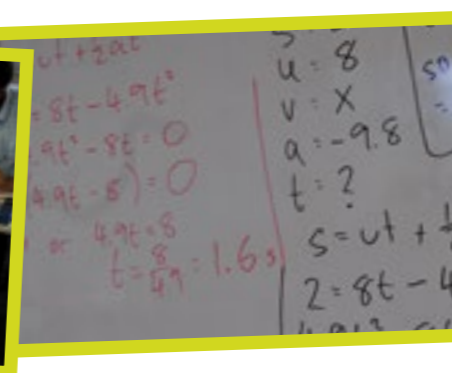 ut + ½at²
= 8t - 4.9t²
.9t² - 8t = 0
(4.9t - 8) = 0
or 4.9t = 8
t = 8/4.9 = 1.6s
u = 8
v = X
a = -9.8
t = ?
s = ut +
2 = 8t - 4
so
=